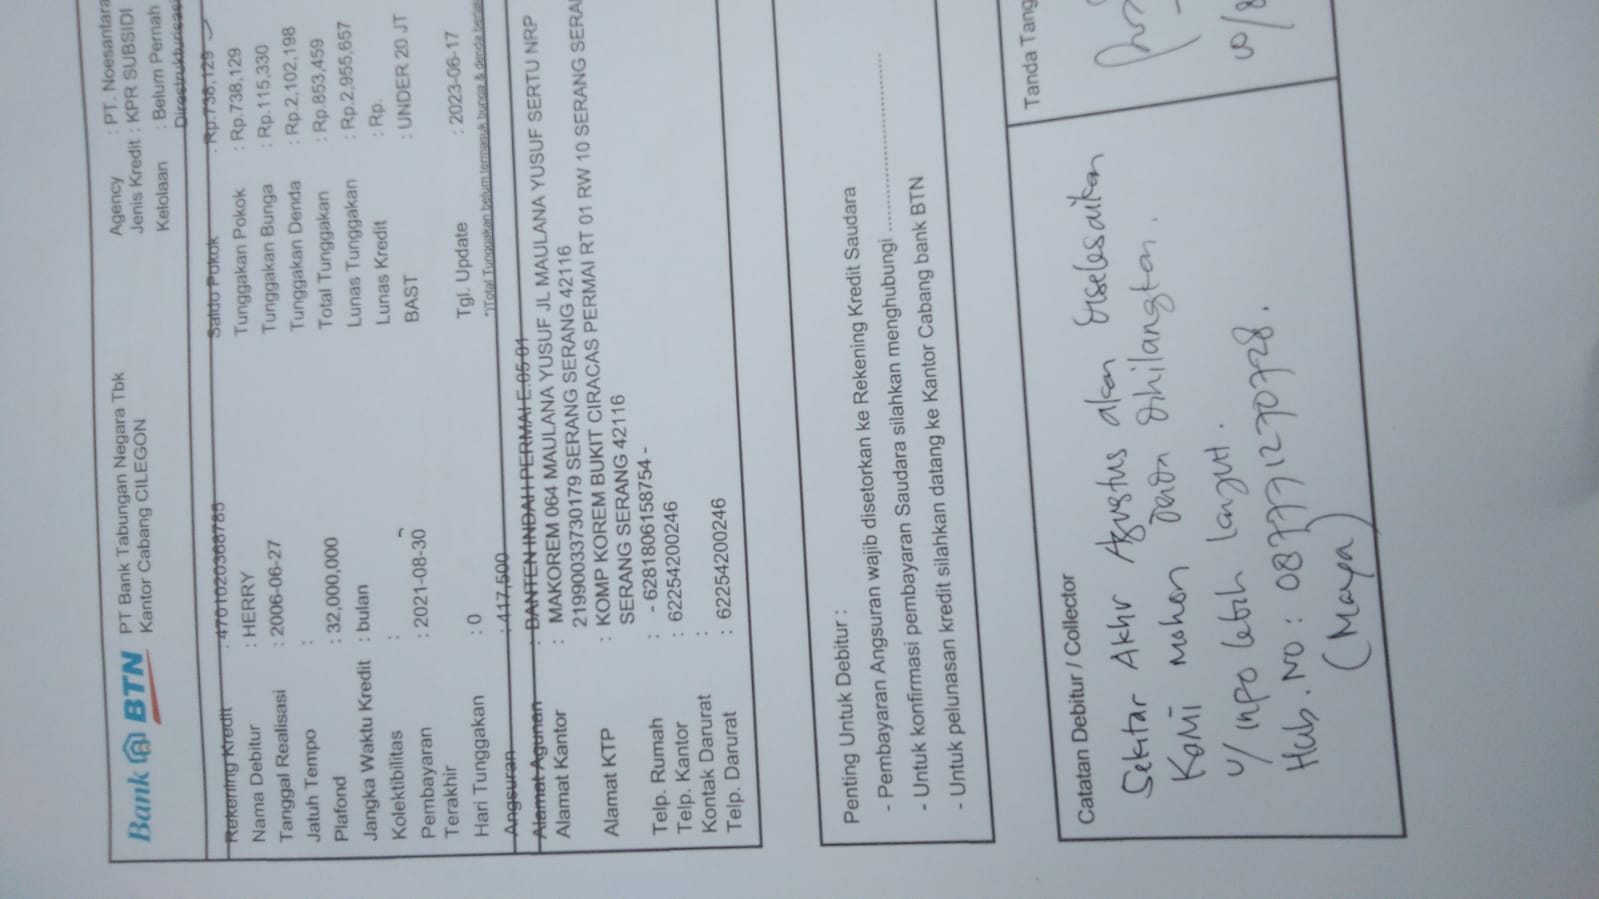 Bank BTN
PT Bank Tabungan Negara Tbk
Kantor Cabang CILEGON
Agency : PT. Noesantara
Jenis Kredit : KPR SUBSIDI
Kelolaan : Belum Pernah
Direstrukturisasi
Rekening Kredit : 4701020368765
Nama Debitur : HERRY
Tanggal Realisasi : 2006-06-27
Jatuh Tempo :
Plafond : 32,000,000
Jangka Waktu Kredit : bulan
Kolektibilitas :
Pembayaran : 2021-08-30
Terakhir
Hari Tunggakan : 0
Angsuran : 417,500
Saldo Pokok : Rp.738,129
Tunggakan Pokok : Rp.738,129
Tunggakan Bunga : Rp.115,330
Tunggakan Denda : Rp.2,102,198
Total Tunggakan : Rp.853,459
Lunas Tunggakan : Rp.2,955,657
Lunas Kredit : Rp.
BAST : UNDER 20 JT
Tgl. Update : 2023-06-17
*)Total Tunggakan belum termasuk bunga & denda
Alamat Agunan : BANTEN INDAH PERMAI E.05 01
Alamat Kantor : MAKOREM 064 MAULANA YUSUF JL MAULANA YUSUF SERTU NRP
21990033730179 SERANG SERANG 42116
Alamat KTP : KOMP KOREM BUKIT CIRACAS PERMAI RT 01 RW 10 SERANG
SERANG SERANG 42116
Telp. Rumah : - 6281806158754 -
Telp. Kantor : 62254200246
Kontak Darurat :
Telp. Darurat : 62254200246
Penting Untuk Debitur :
- Pembayaran Angsuran wajib disetorkan ke Rekening Kredit Saudara
- Untuk konfirmasi pembayaran Saudara silahkan menghubungi ..............................
- Untuk pelunasan kredit silahkan datang ke Kantor Cabang bank BTN
Catatan Debitur / Collector
Tanda Tang
Sekitar Akhir Agustus akan diselesaikan
Kami mohon denda dihilangkan.
U/ info lebih lanjut.
Hub. No : 087771270728.
(Maya)